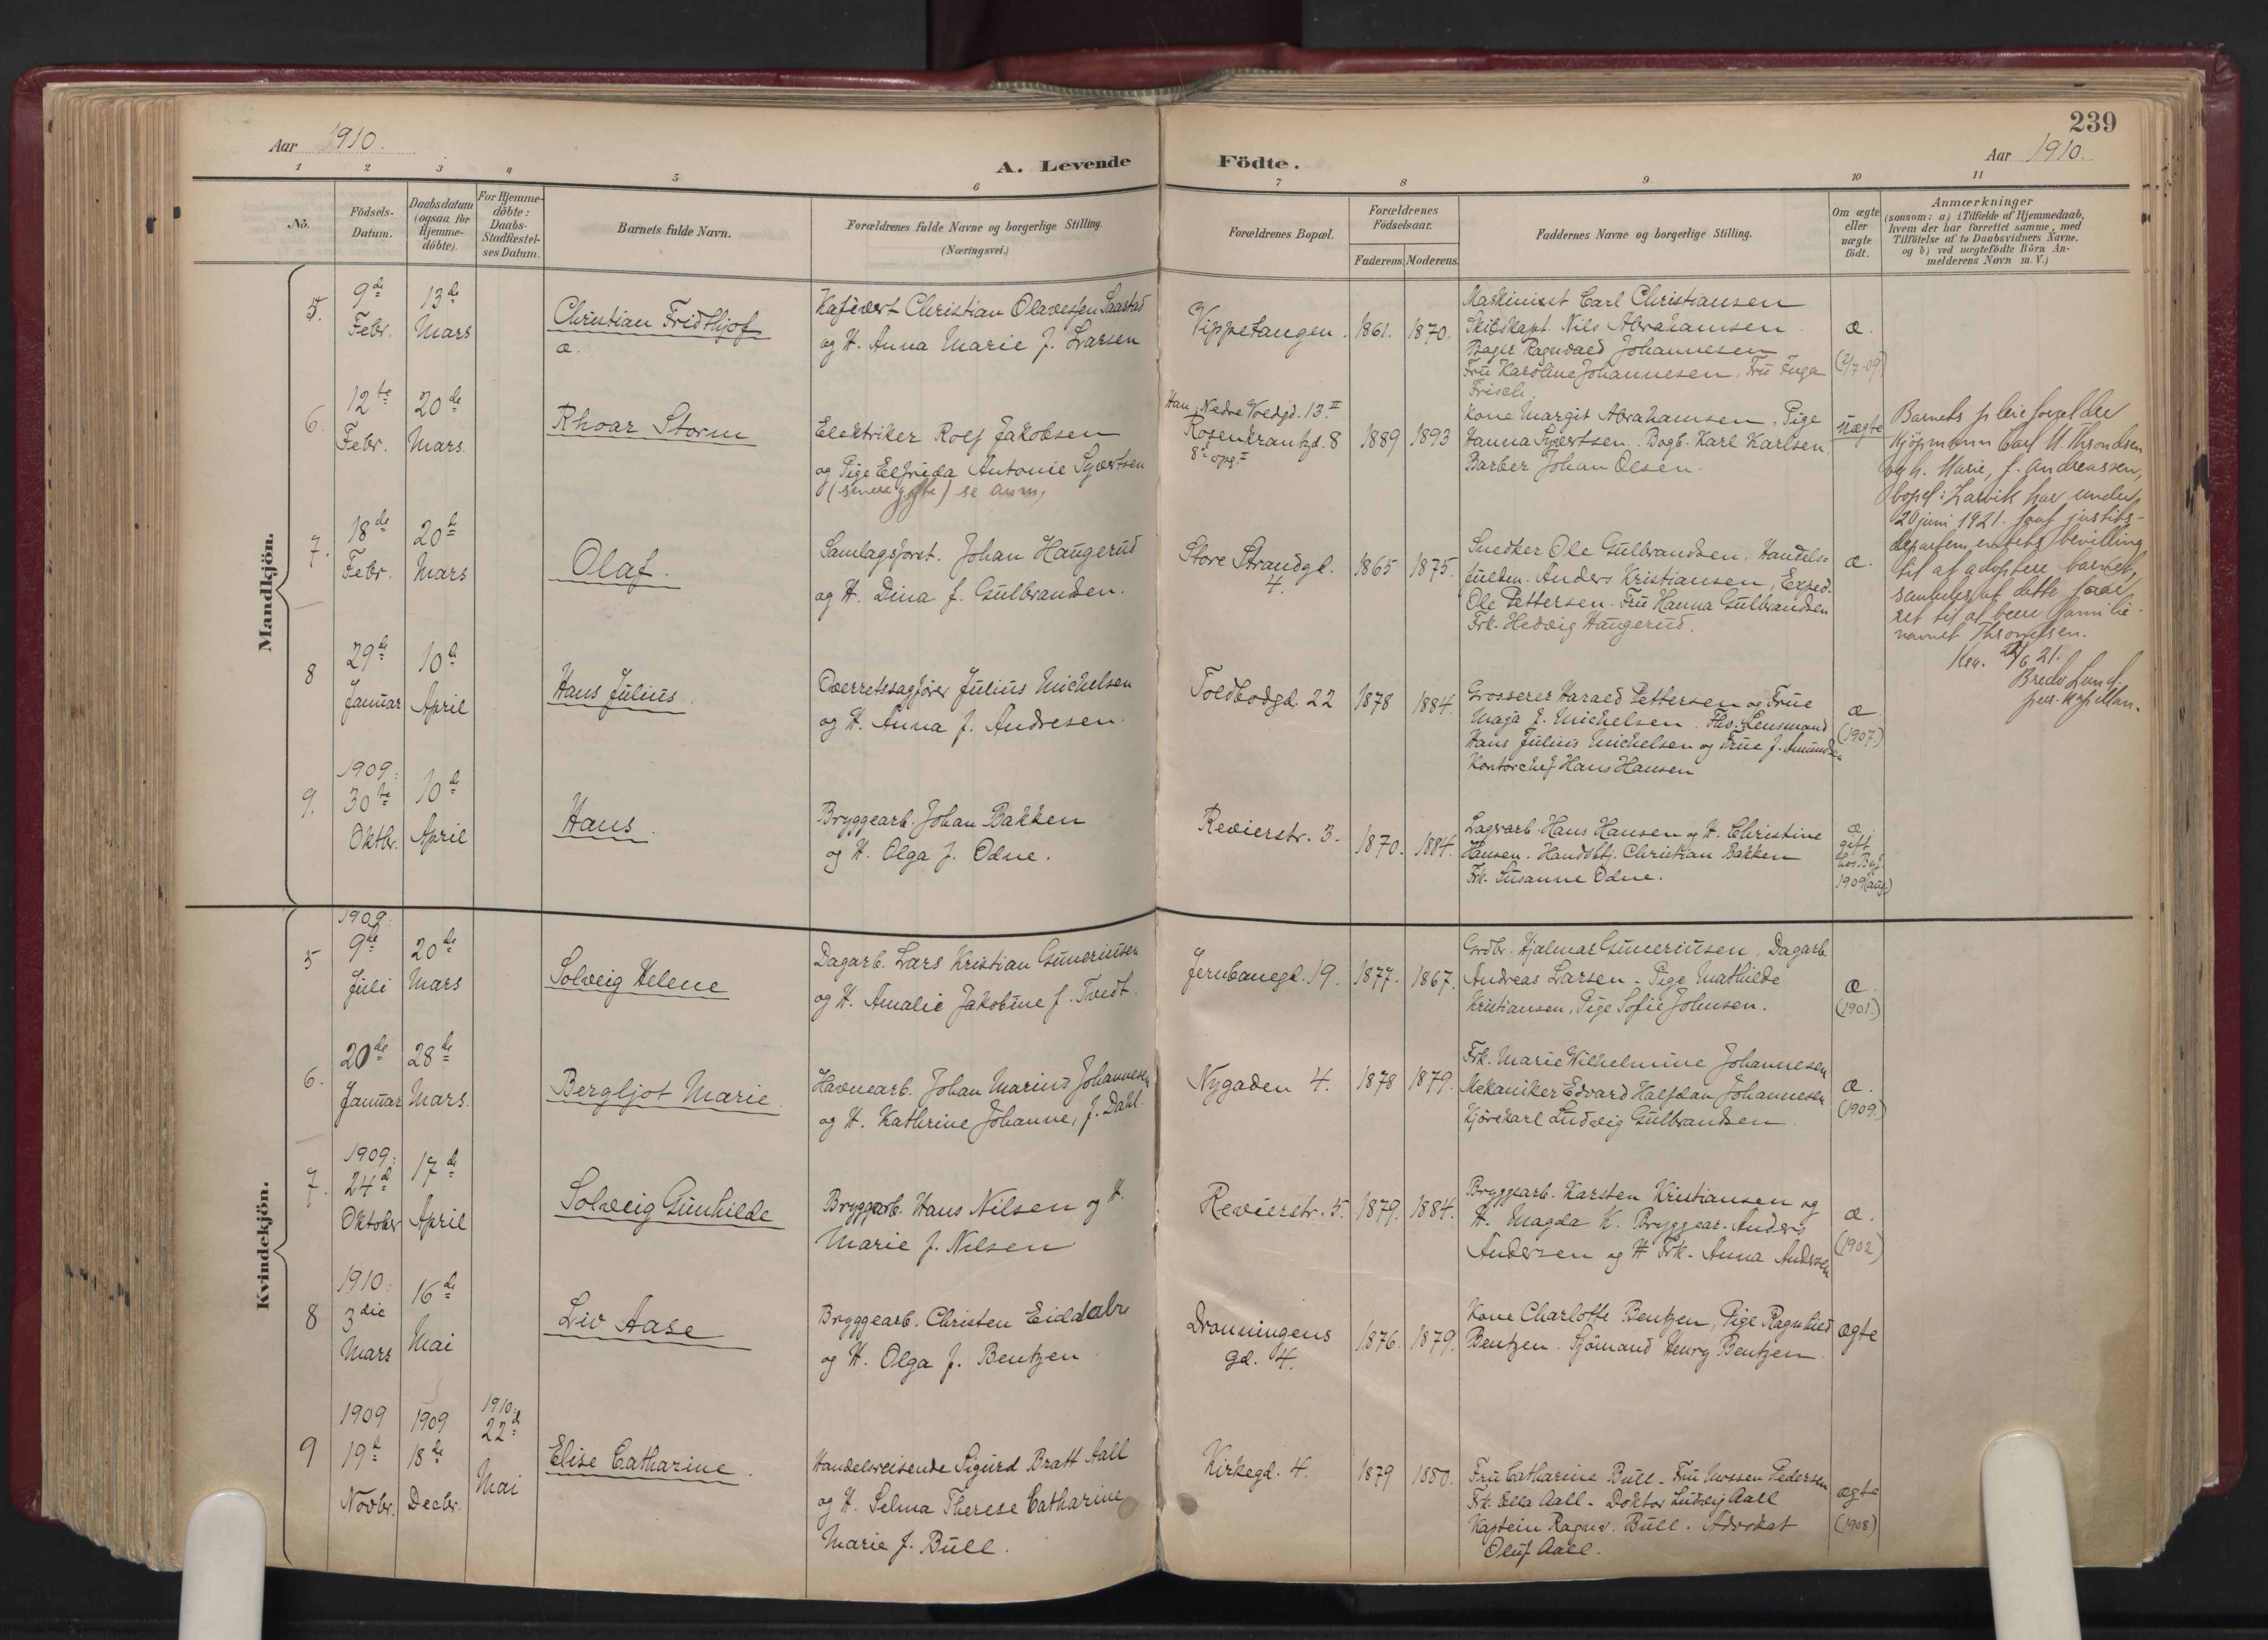 239
Aar 1910.
A. Levende Födte.
Aar 1910.
1 2 3 4 5 6 7 8 9 10 11
No.
Födsels-Datum.
Daabsdatum (ogsaa for Hjemme-döbte).
For Hjemme-döbte: Daabs-Stadfæstel-ses Datum.
Barnets fulde Navn.
Forældrenes fulde Navne og borgerlige Stilling. (Næringsvei.)
Forældrenes Bopæl.
Forældrenes Födselsaar.
Faderens. Moderens.
Faddernes Navne og borgerlige Stilling.
Om ægte eller uægte födt.
Anmærkninger
(saasom: a) i Tilfælde af Hjemmedaab,
hvem der har forrettet samme, med
Tilföielse af to Daabsvidners Navne.
og b) ved uægtefödte Börn An-
melderens Navn m. V.)
Mandkjön.
5.
9de Febr.
13de Mars
Christian Fridthjof
æ.
Kafévert Christian Olavessen Saastad
og H. Anna Marie f. Larsen
Vippetangen.
1861. 1870.
Maskinist Carl Christiansen
Skibskapt. Nils Abrahamsen
Bager Ragnvald Johannesen
Fru Karoline Johannesen, Fru Inga
Frisch
æ.
(2/7-09)
6.
12te Febr.
20de Mars.
Rhoar Storm
Elektriker Rolf Jakobsen
og Pige Elfrida Antonie Syvertsen
(senere gifte) se anm,
Han, Nedre Voldgd. 13.II
Rosenkrantzd. 8
8' opg. I
1889 1893
Kone Margit Abrahamsen, Pige
Hanna Syvertsen. Bogb. Karl Karlsen
Barber Johan Olsen.
uægte
Barnets pleieforældre
kjöpmann Carl M. Throndsen
og h. Marie, f. Andreassen,
bopel: Larvik har under
20 juni 1921 faat justits-
departementets bevilling
til at adoptere barnet,
samtidig at dette faar
ret til at bære familie-
navnet Throndsen.
Kra. 22/6 21.
Bredo Lund.
pers. kapellan.
7.
18de Febr.
20de Mars
Olaf.
Samlagsforst. Johan Haugerud
og H. Dina f. Gulbrandsen.
Store Strandgd.
4.
1865 1875.
Snedker Ole Gulbrandsen, Handels-
fuldm. Anders Kristiansen, Exped.
Ole Pettersen. Fru Hanna Gulbrandsen
Frk. Hedvig Haugerud.
æ.
8
29de Januar
10de April
Hans Julius.
Overretssagförer Julius Michelsen
og H. Anna f. Andresen.
Toldbodgd. 22
1878 1884.
Grosserer Harald Pettersen og Frue
Maja f. Michelsen. Fhv. Lensmand
Hans Julius Michelsen og Frue f. Amundsen
Kontorchef Hans Hansen
æ
(1907.)
9.
1909:
30te Oktbr.
10de April
Hans.
Bryggearb. Johan Bakken
og H. Olga f. Odne.
Revierstr. 3.
1870. 1884.
Lagerarb. Hans Hansen og H. Christine
Hansen. Handelsbtj. Christian Bakken
Frk. Susanne Odne.
æ
gift
hos Byf.
1909(aug)
Kvindekjön.
5
1909:
9de Juli
20de Mars
Solveig Helene
Dagarb. Lars Kristian Guneriussen
og H. Amalie Jakobine f. Tvedt.
Jernbanegd. 19.
1877. 1867.
Grdbr. Hjalmar Guneriusen, Dagarb.
Andreas Larsen - Pige Mathilde
Kristiansen, Pige Sofie Johnsen.
æ.
(1901.)
6.
20de Januar
28de Mars.
Bergljot Marie.
Havnearb. Johan Marius Johannesen
og H. Kathrine Johanne, f. Dahl.
Nygaden 4.
1878 1879.
Frk. Marie Wilhelmine Johannesen
Mekaniker Edvard Halfdan Johannesen
Kjörekarl Ludvig Gulbrandsen.
æ.
(1909.)
7.
1909:
24de Oktober
17de April
Solveig Gunhilde
Bryggarb. Hans Nilsen og H.
Marie f. Nilsen
Revierstr. 5.
1879. 1884.
Bryggearb. Karsten Kristiansen og
H. Magda K. Bryggear. Anders
Andersen og H Frk. Anna Andersen
æ.
(1902)
8
1910:
3die Mars
16de Mai
Liv Aase
Bryggearb. Christen Eiddalen
og H. Olga f. Bentzen
Dronningens
gd. 4.
1876. 1879.
Kone Charlotte Bentzen, Pige Ragnhild
Bentzen. Sjömand Henry Bentzen.
ægte
9
1909
19de Novbr.
1909
18de Decbr.
1910:
22de Mai
Elise Catharine.
Handelsreisende Sigurd Bratt Aall
og H. Selma Therese Catharine
Marie f. Bull.
Kirkegd. 4.
1879 1880.
Fru Catharine Bull - Fru Pedersen
Frk. Ella Aall - Doktor Ludvig Aall
Kaptein Ragnv. Bull. Advokat
Oluf Aall.
ægte
(1908)